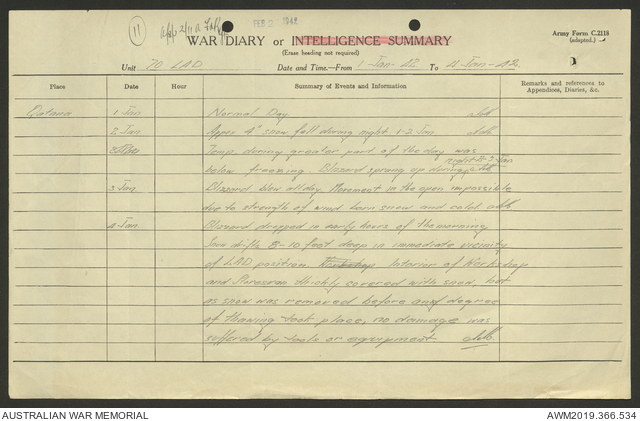 11
FEB 1942
WAR DIARY or INTELLIGENCE SUMMARY
(Erase heading not required)
Army Form C.2118
(adapted.)
Unit 70 LAD Date and Time.—From 1-Jan-42 To 4-Jan-42.
Place Date Hour Summary of Events and Information Remarks and references to Appendices, Diaries, &c.
Qatana 1-Jan Normal Day
2-Jan Approx 4" snow fall during night 1-2-Jan
Temp. during greater part of the day was
below freezing Blizzard sprang up during night 2-3-Jan
3-Jan. Blizzard blew all day. Movement in the open impossible
due to strength of wind born snow and cold.
4-Jan. Blizzard dropped in early hours of the morning
Snow drifts 8-10 feet deep in immediate vicinity
of LAD position. Workshop Interior of Workshop
and Storesvan thickly covered with snow, but
as snow was removed before any degree
of thawing took place, no damage was
suffered by tools or equipment
AUSTRALIAN WAR MEMORIAL AWM2019.366.534